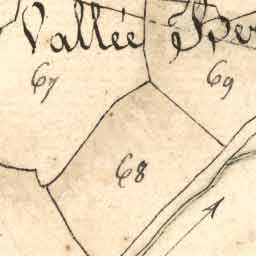 Vallée
67
69
68